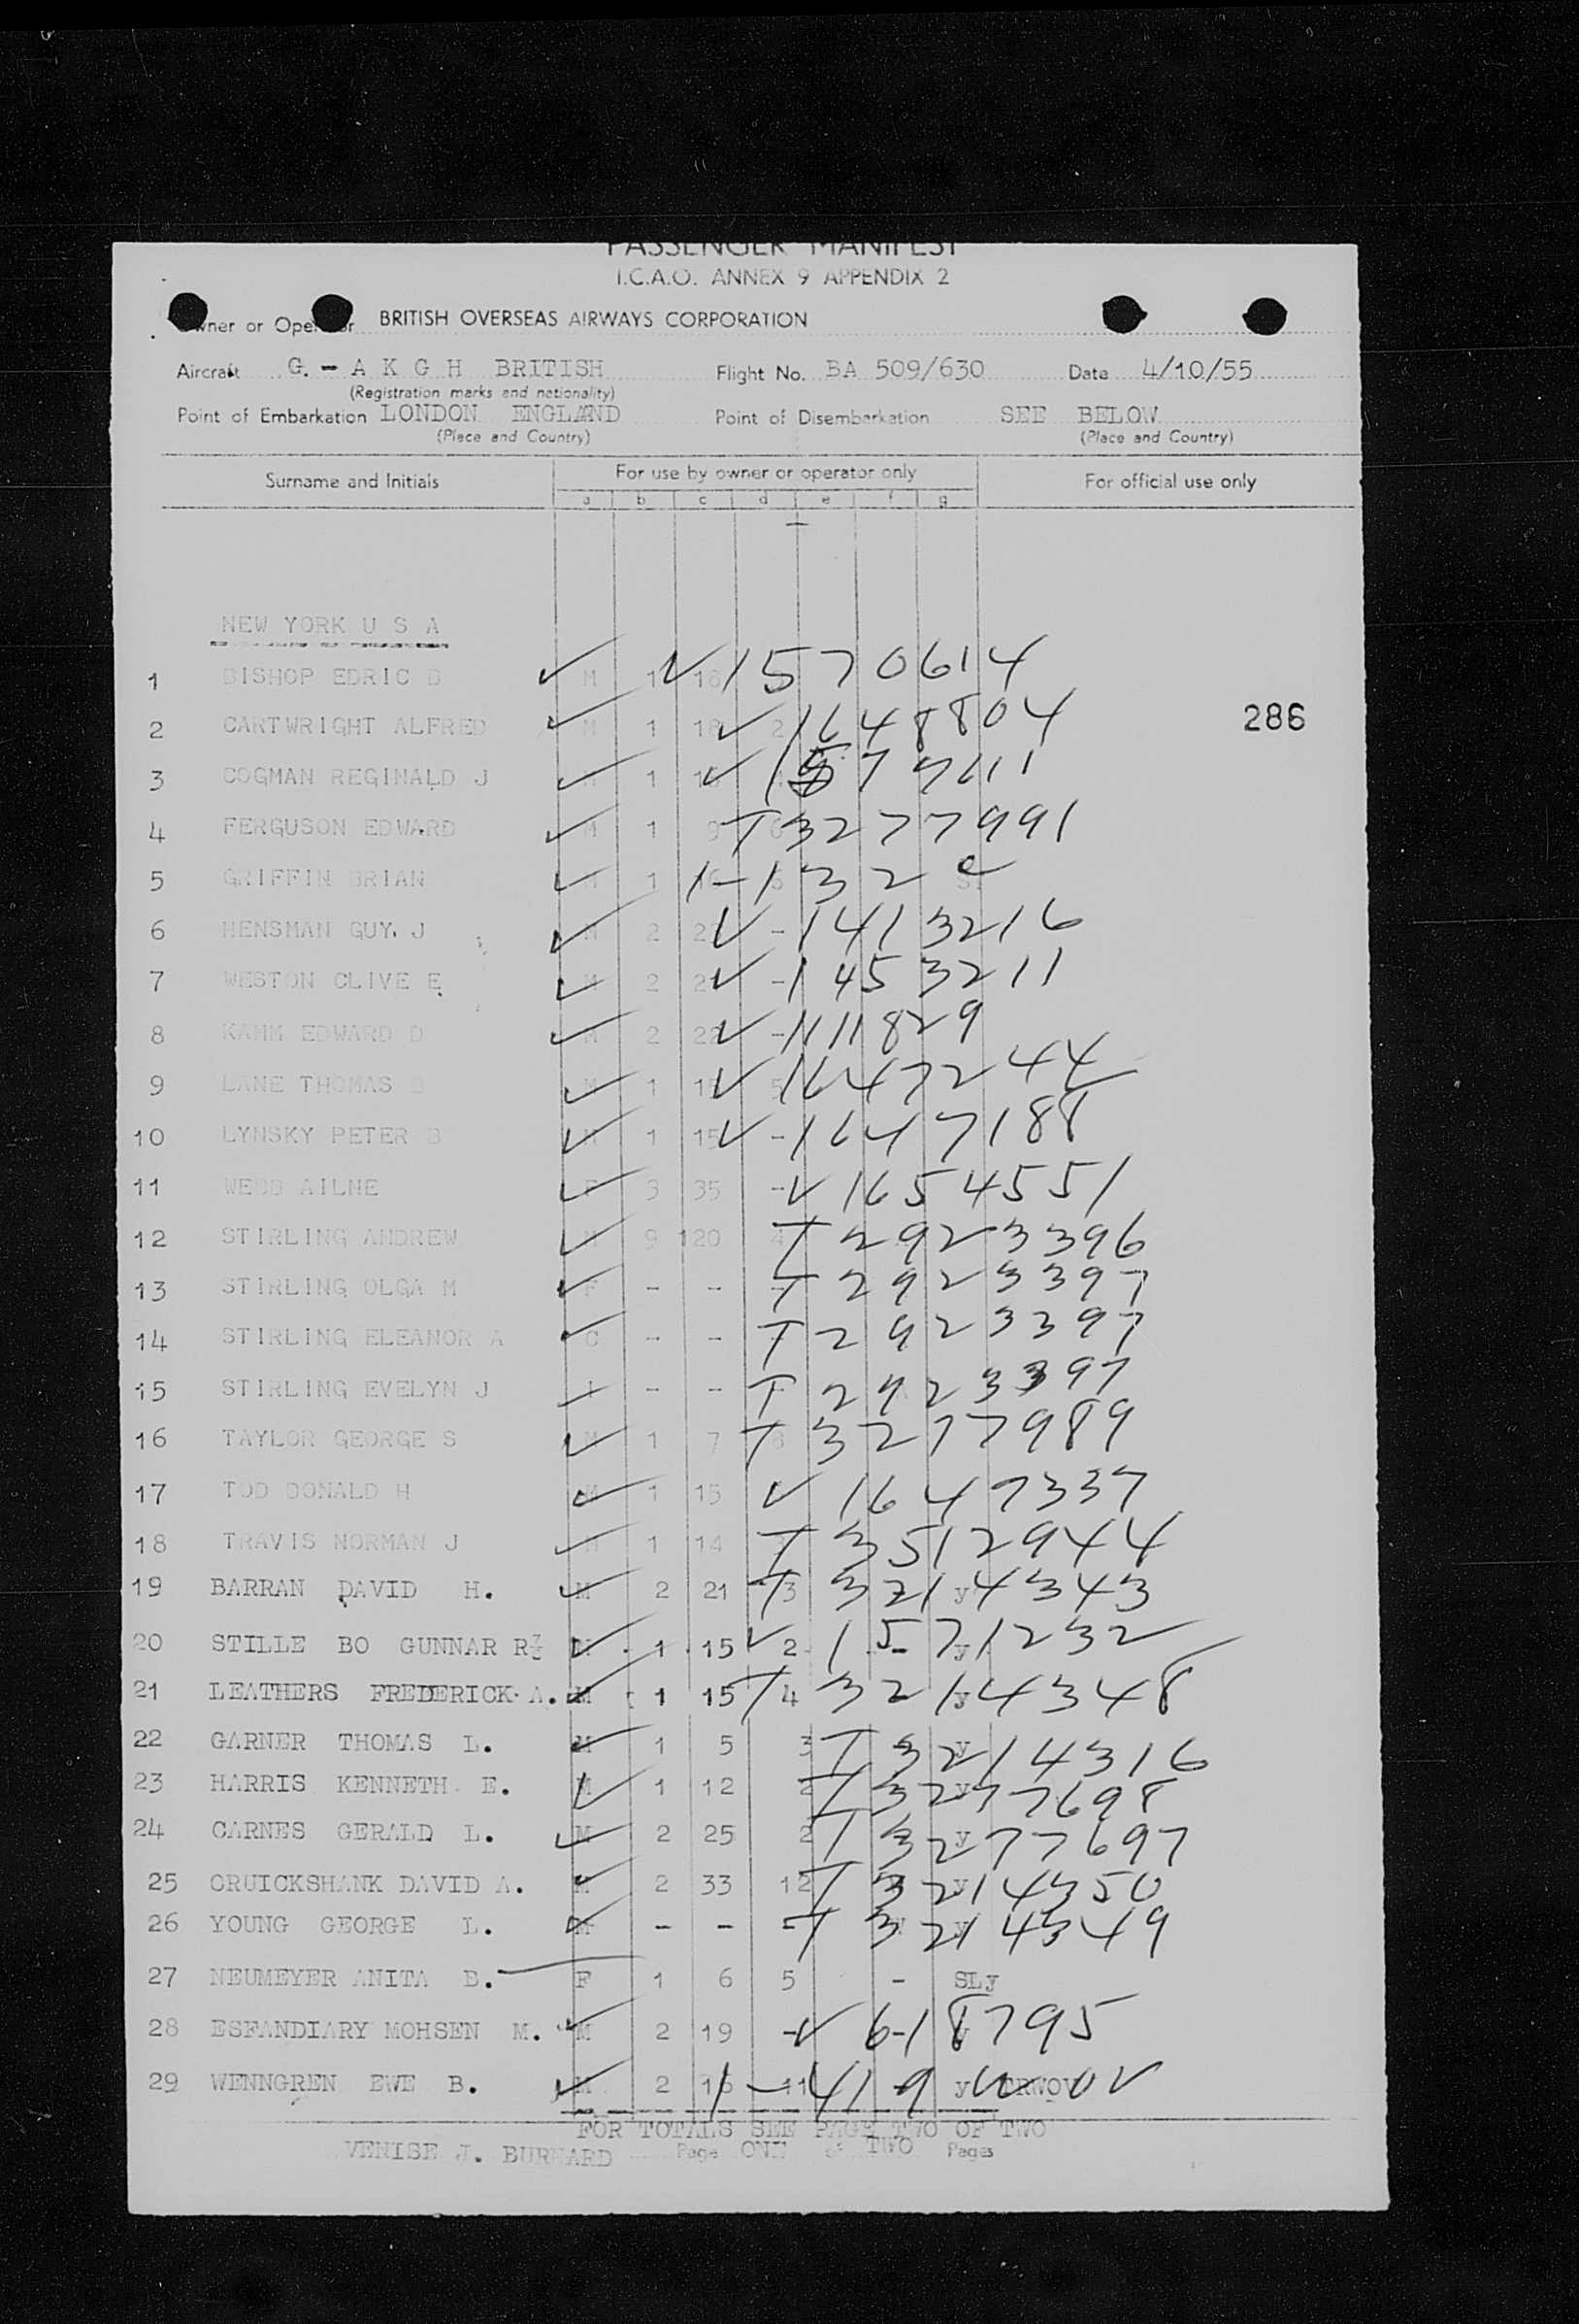 PASSENGER MANIFEST
I.C.A.O. ANNEX 9 APPENDIX 2
Owner or Operator BRITISH OVERSEAS AIRWAYS CORPORATION
Aircraft G. - A K G H BRITISH Flight No. BA 509/630 Date 4/10/55
(Registration marks and nationality)
Point of Embarkation LONDON ENGLAND Point of Disembarkation SEE BELOW
(Place and Country) (Place and Country)
Surname and Initials For use by owner or operator only For official use only
a b c d e f g
NEW YORK U S A
1 BISHOP EDRIC B M 1 ✓ 1570614
2 CARTWRIGHT ALFRED M 1 ✓ 1648804
286
3 COGMAN REGINALD J 1 ✓
4 FERGUSON EDWARD M 1 9 T 3277991
5 GRIFFIN BRIAN 1 1-132
6 HENSMAN GUY J 2 ✓ 1413216
7 WESTON CLIVE E M 2 ✓ - 1453211
8 EDWARD D M 2 22 ✓ - 111829
9 LANE THOMAS M 1 ✓ 1647244
10 LYNSKY PETER B M 1 15 ✓ - 1647188
11 WEBB AILNE F 3 35 - ✓ 1654551
12 STIRLING ANDREW M 9 120 4 T 2923396
13 STIRLING OLGA M F - - - T 2923397
14 STIRLING ELEANOR A C - - T 2923397
15 STIRLING EVELYN J - - T 2923397
16 TAYLOR GEORGE S M 1 7 T 3277989
17 TOD DONALD H M 1 15 ✓ 1647337
18 TRAVIS NORMAN J M 1 14 T 3512944
19 BARRAN DAVID H. M 2 21 3 T 3214343 y
20 STILLE BO GUNNAR M 1 15 ✓ 2 - 1571232 y
21 LEATHERS FREDERICK A. M 1 15 4 T 3214348 y
22 GARNER THOMAS L. M 1 5 3 T 3214316 y
23 HARRIS KENNETH E. M 1 12 2 T 3277698 y
24 CARNES GERALD L. M 2 25 2 T 3277697 y
25 CRUICKSHANK DAVID A. M 2 33 12 T 3214350 y
26 YOUNG GEORGE L. M - - - T 3214349 y
27 NEUMEYER ANITA E. F 1 6 5 - SLy
28 ESFANDIARY MOHSEN M. M 2 19 - ✓ 6-18795
29 WENNGREN EWE B. M 2 16 11 1-419 y
FOR TOTALS SEE PAGE TWO OF TWO
VENISE J. BURNARD Page ONE of TWO Pages